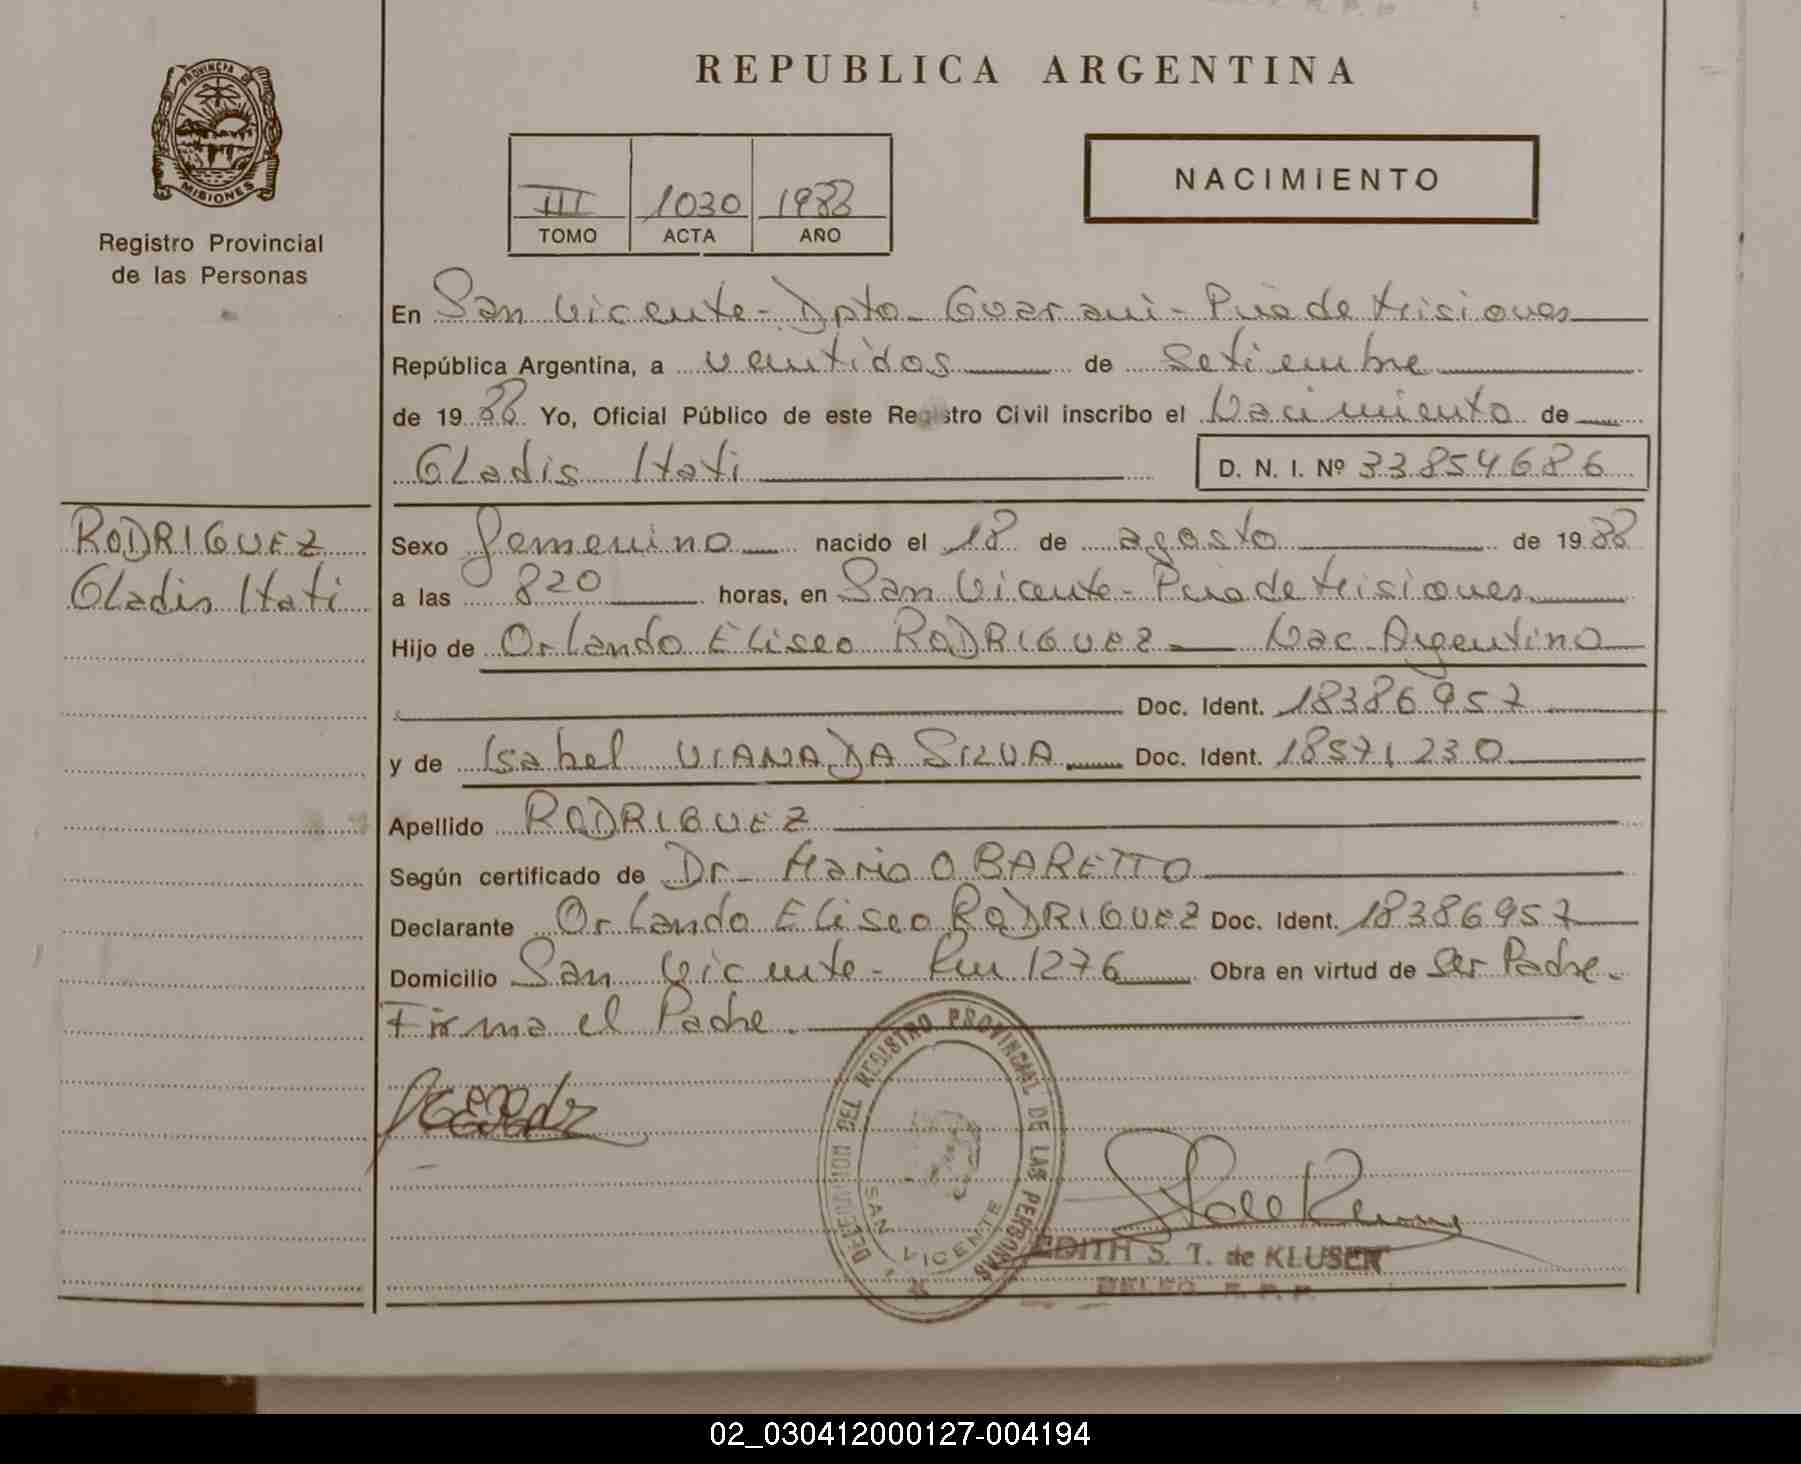 REPUBLICA ARGENTINA
PROVINCIA DE
MISIONES
Registro Provincial
de las Personas
III 1030 1988
TOMO ACTA AÑO
NACIMIENTO
En San Vicente - Dpto - Guarani - Pcia de Misiones
República Argentina, a ventidos de setiembre
de 19 88 Yo, Oficial Público de este Registro Civil inscribo el Nacimiento de
Gladis Itati D. N. I. Nº 33854686
RODRIGUEZ
Gladis Itati
Sexo femenino nacido el 18 de agosto de 19 88
a las 820 horas, en San Vicente - Pcia de Misiones
Hijo de Orlando Eliseo RODRIGUEZ - Nac. Argentino
Doc. Ident. 18386957
y de Isabel VIANA DA SILVA Doc. Ident. 18571230
Apellido RODRIGUEZ
Según certificado de Dr - Mario O BARETTO
Declarante Orlando Eliseo RODRIGUEZ Doc. Ident. 18386957
Domicilio San Vicente - Km 1276 Obra en virtud de Ser Padre.
Firma el Padre.
DEL REGISTRO PROVINCIAL DE LAS PERSONAS
SAN VICENTE
EDITH S. T. de KLUSER
02_030412000127-004194